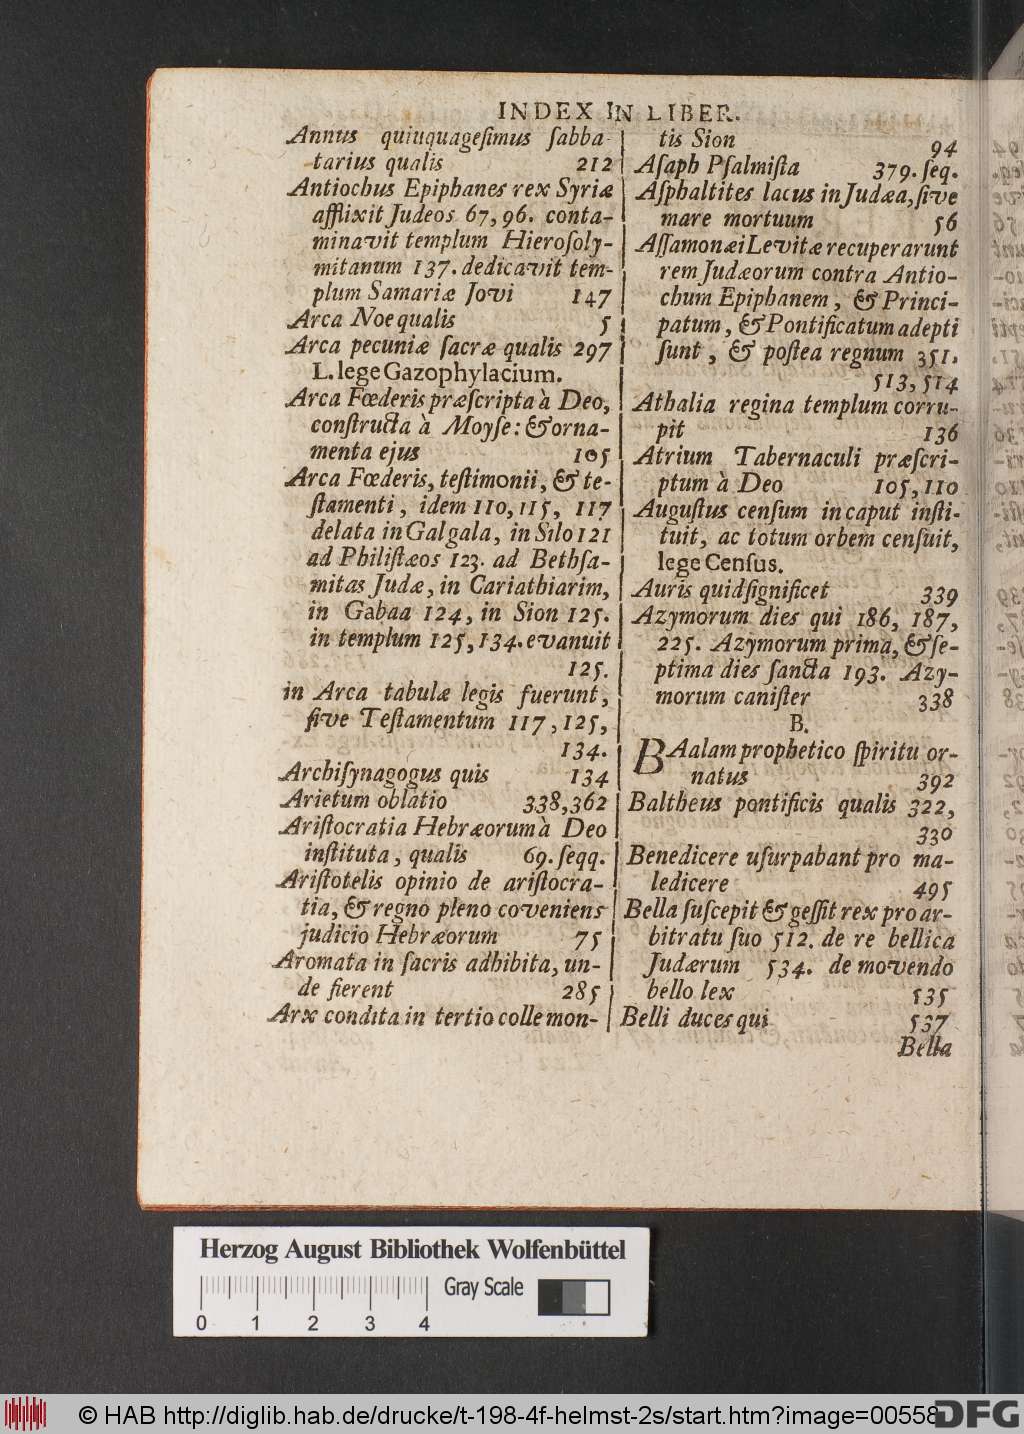 INDEX IN LIBER.
Annus quiuquageſimus ſabba-
tarius qualis 212
Antiochus Epiphanes rex Syriæ
afflixit Judeos 67, 96. conta-
minavit templum Hieroſoly-
mitanum 137. dedicavit tem-
plum Samariæ Jovi 147
Arca Noe qualis 5
Arca pecuniæ ſacræ qualis 297
L. lege Gazophylacium.
Arca Fœderis præſcripta à Deo,
conſtructa à Moyſe: & orna-
menta ejus 105
Arca Fœderis, teſtimonii, & te-
ſtamenti, idem 110, 115, 117
delata in Galgala, in Silo 121
ad Philiſtæos 123. ad Bethſa-
mitas Judæ, in Cariathiarim,
in Gabaa 124, in Sion 125.
in templum 125, 134. evanuit
125.
in Arca tabulæ legis fuerunt,
ſive Teſtamentum 117, 125,
134.
Archiſynagogus quis 134
Arietum oblatio 338, 362
Ariſtocratia Hebræorum à Deo
inſtituta, qualis 69. ſeqq.
Ariſtotelis opinio de ariſtocra-
tia, & regno pleno coveniens
judicio Hebræorum 75
Aromata in ſacris adhibita, un-
de fierent 285
Arx condita in tertio colle mon-
tis Sion 94
Aſaph Pſalmiſta 379. ſeq.
Aſphaltites lacus in Judæa, ſive
mare mortuum 56
Aſſamonæi Levitæ recuperarunt
rem Judæorum contra Antio-
chum Epiphanem, & Princi-
patum, & Pontificatum adepti
ſunt, & poſtea regnum 351,
513, 514
Athalia regina templum corru-
pit 136
Atrium Tabernaculi præſcri-
ptum à Deo 105, 110
Auguſtus cenſum in caput inſti-
tuit, ac totum orbem cenſuit,
lege Cenſus.
Auris quid ſignificet 339
Azymorum dies qui 186, 187,
225. Azymorum prima, & ſe-
ptima dies ſancta 193. Azy-
morum caniſter 338
B.
BAalam prophetico ſpiritu or-
natus 392
Baltheus pontificis qualis 322,
330
Benedicere uſurpabant pro ma-
ledicere 495
Bella ſuſcepit & geſſit rex pro ar-
bitratu ſuo 512. de re bellica
Judærum 534. de movendo
bello lex 535
Belli duces qui 537
Bella
Herzog August Bibliothek Wolfenbüttel
Gray Scale
0 1 2 3 4
© HAB http://diglib.hab.de/drucke/t-198-4f-helmst-2s/start.htm?image=00558
DFG